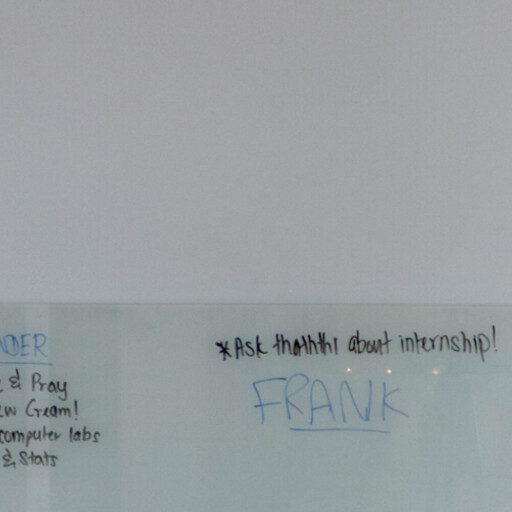 & Pray
Cream!
computer labs
& Stats
*Ask thaththi about internship!
FRANK